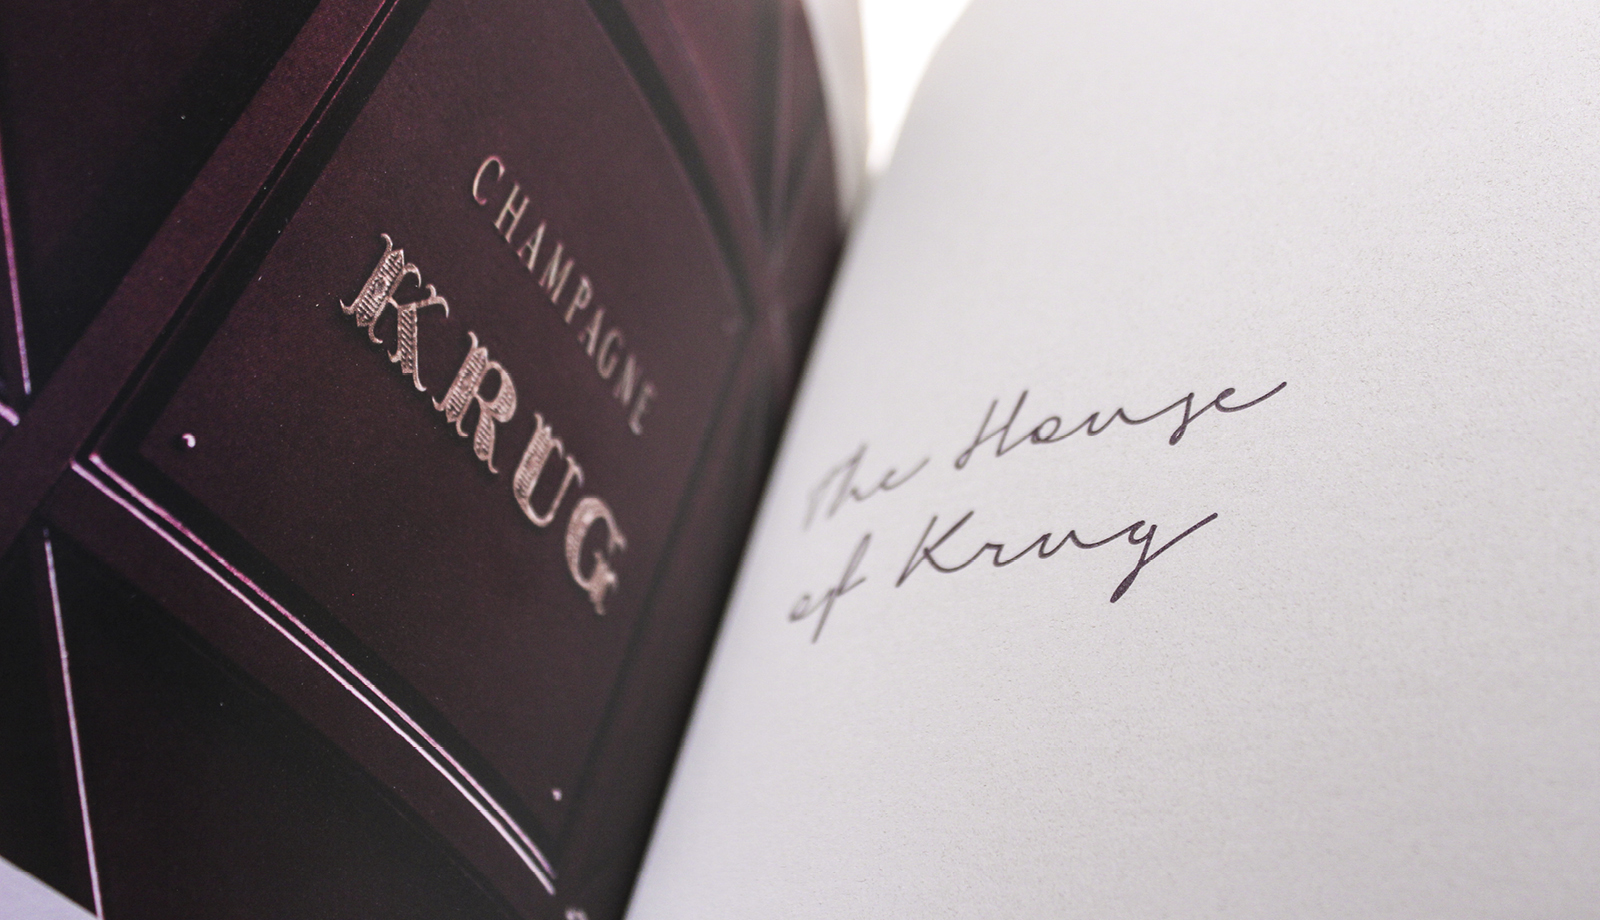 CHAMPAGNE
KRUG
The House
of Krug